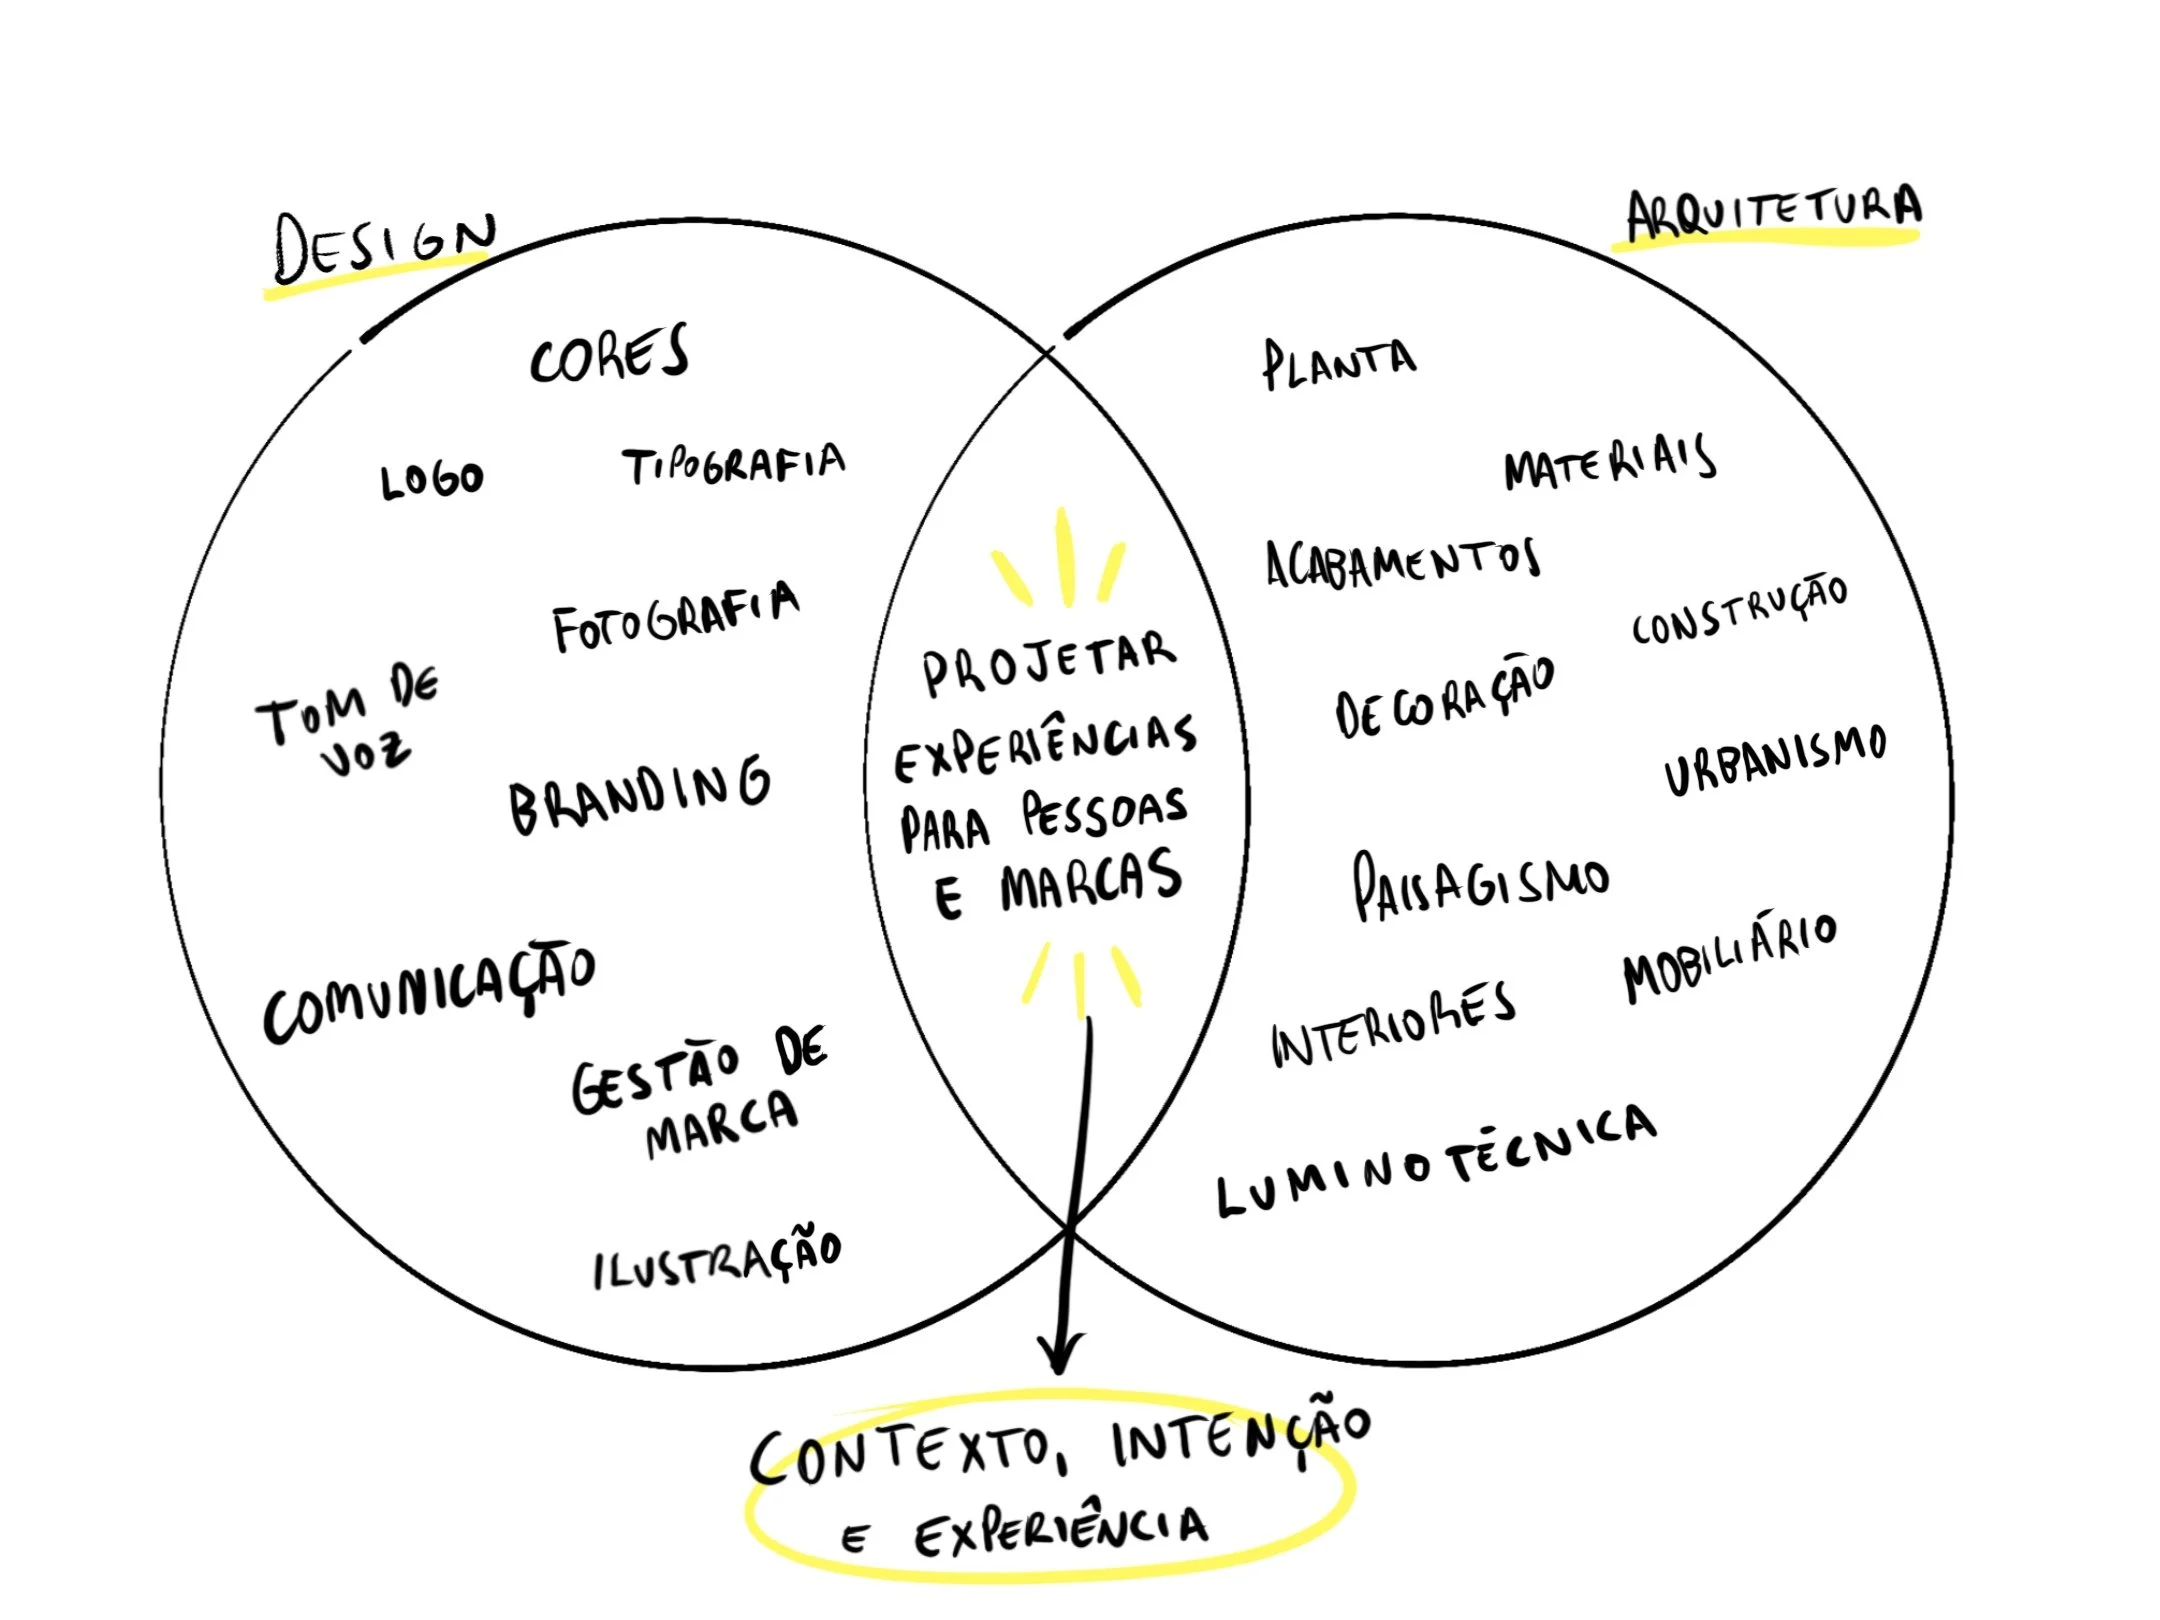 DESIGN
CORES
LOGO
TIPOGRAFIA
FOTOGRAFIA
TOM DE
VOZ
BRANDING
COMUNICAÇÃO
GESTÃO DE
MARCA
ILUSTRAÇÃO
PROJETAR
EXPERIÊNCIAS
PARA PESSOAS
E MARCAS
ARQUITETURA
PLANTA
MATERIAIS
ACABAMENTOS
CONSTRUÇÃO
DECORAÇÃO
URBANISMO
PAISAGISMO
MOBILIÁRIO
INTERIORES
LUMINOTÉCNICA
CONTEXTO, INTENÇÃO
E EXPERIÊNCIA